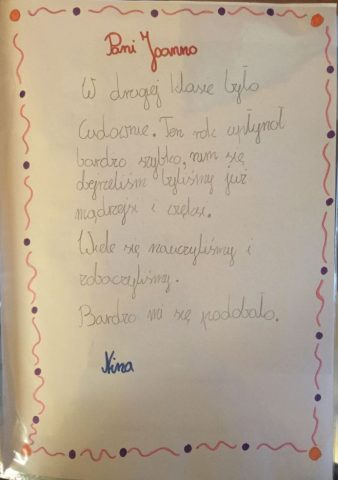 Pani Joanno
W drugiej klasie było
Cudownie. Ten rok upłynoł
bardzo szybko, nim się
obejrzeliśm byliśmy już
mądrzejsi i
Wiele się nauczyliśmy i
zobaczyliśmy.
Bardzo mi się podobało.
Nina